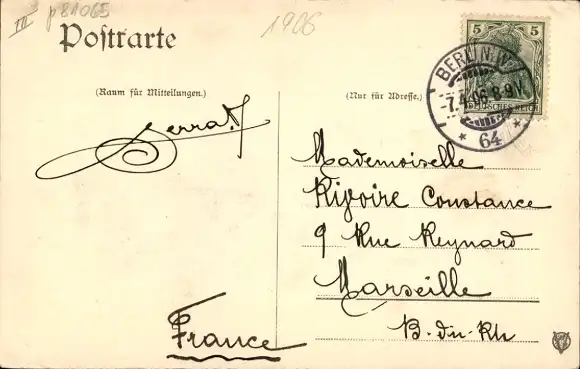 III p81065
1906
Postkarte
(Raum für Mitteilungen.)
(Nur für Adresse.)
5 5
DEUTSCHES REICH
BERLIN.W.
-7.4.06.8-9V.
* 64 *
Mademoiselle
Rivoire Constance
9 Rue Reynard
Marseille
B-du-Rh
France